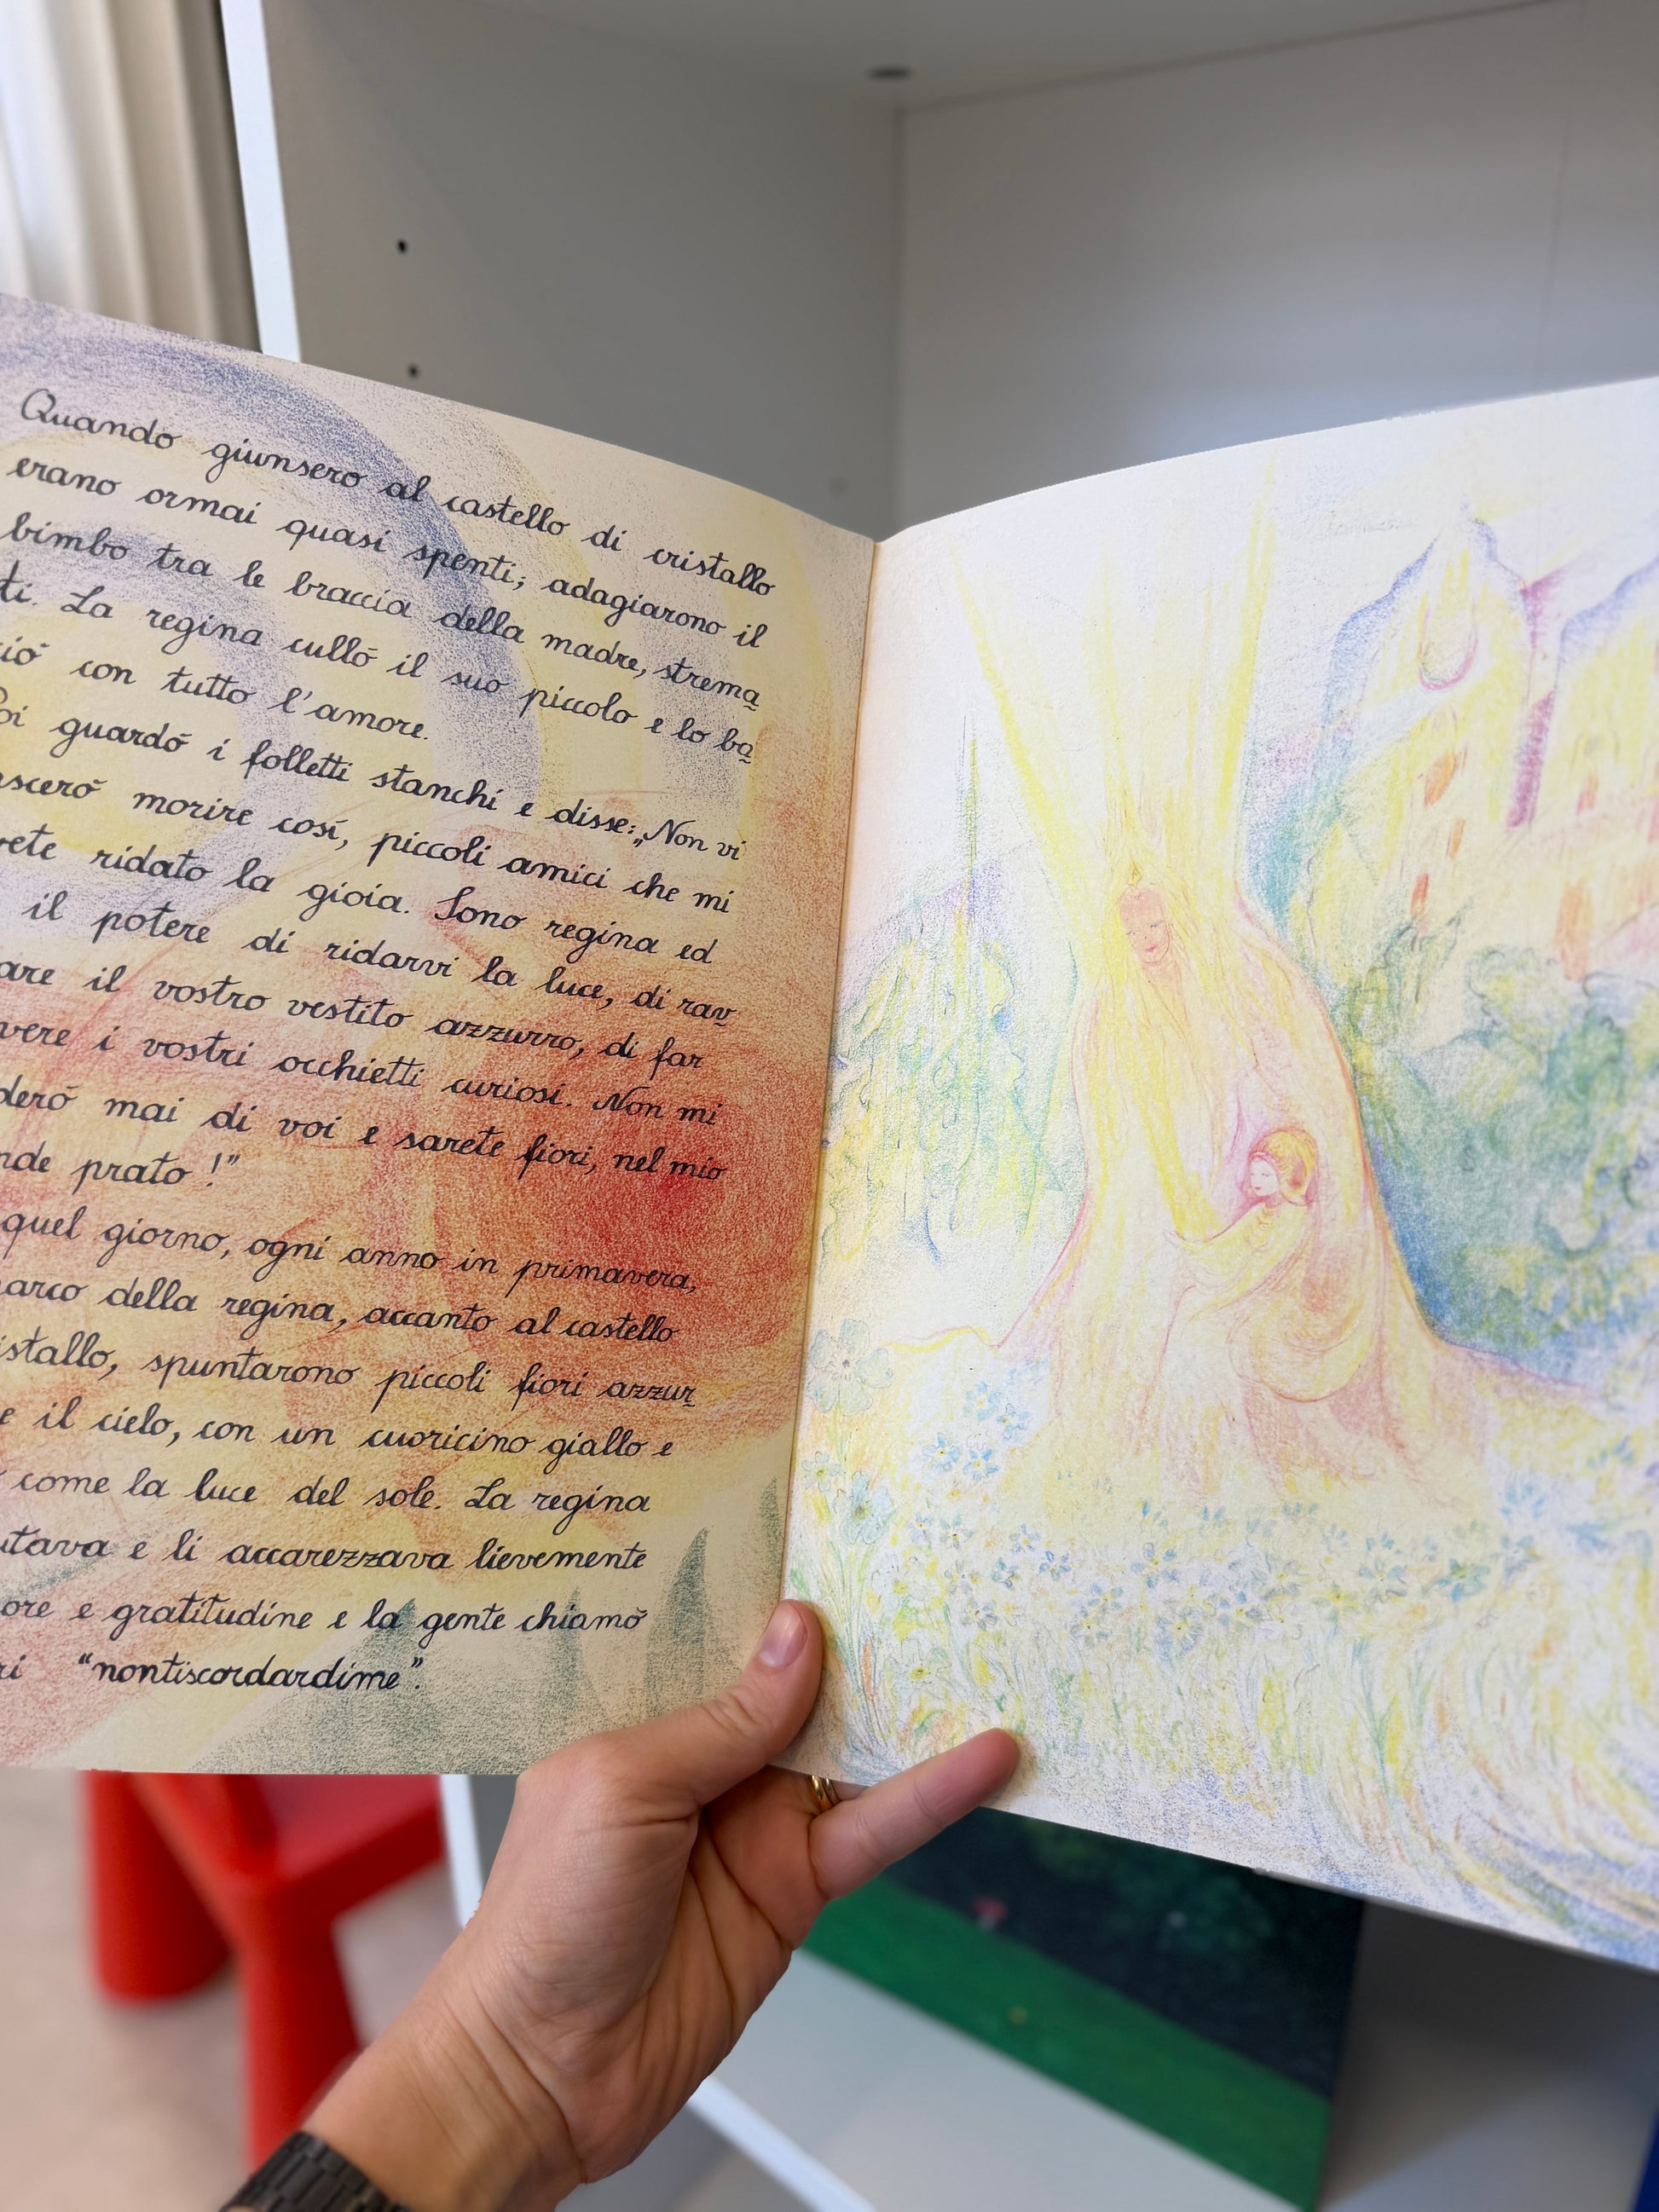 Quando giunsero al castello di cristallo
erano ormai quasi spenti; adagiarono il
bimbo tra le braccia della madre, strema
ti. La regina cullò il suo piccolo e lo ba
ciò con tutto l'amore.
Poi guardò i folletti stanchi e disse: „Non vi
morire così, piccoli amici che mi
ridato la gioia. Sono regina ed
il potere di ridarvi la luce, di rav
il vostro vestito azzurro, di far
i vostri occhietti curiosi. Non mi
mai di voi e sarete fiori, nel mio
prato!"
quel giorno, ogni anno in primavera,
della regina, accanto al castello
spuntarono piccoli fiori azzur
il cielo, con un cuoricino giallo e
come la luce del sole. La regina
e li accarezzava lievemente
e gratitudine e la gente chiamò
"nontiscordardime".